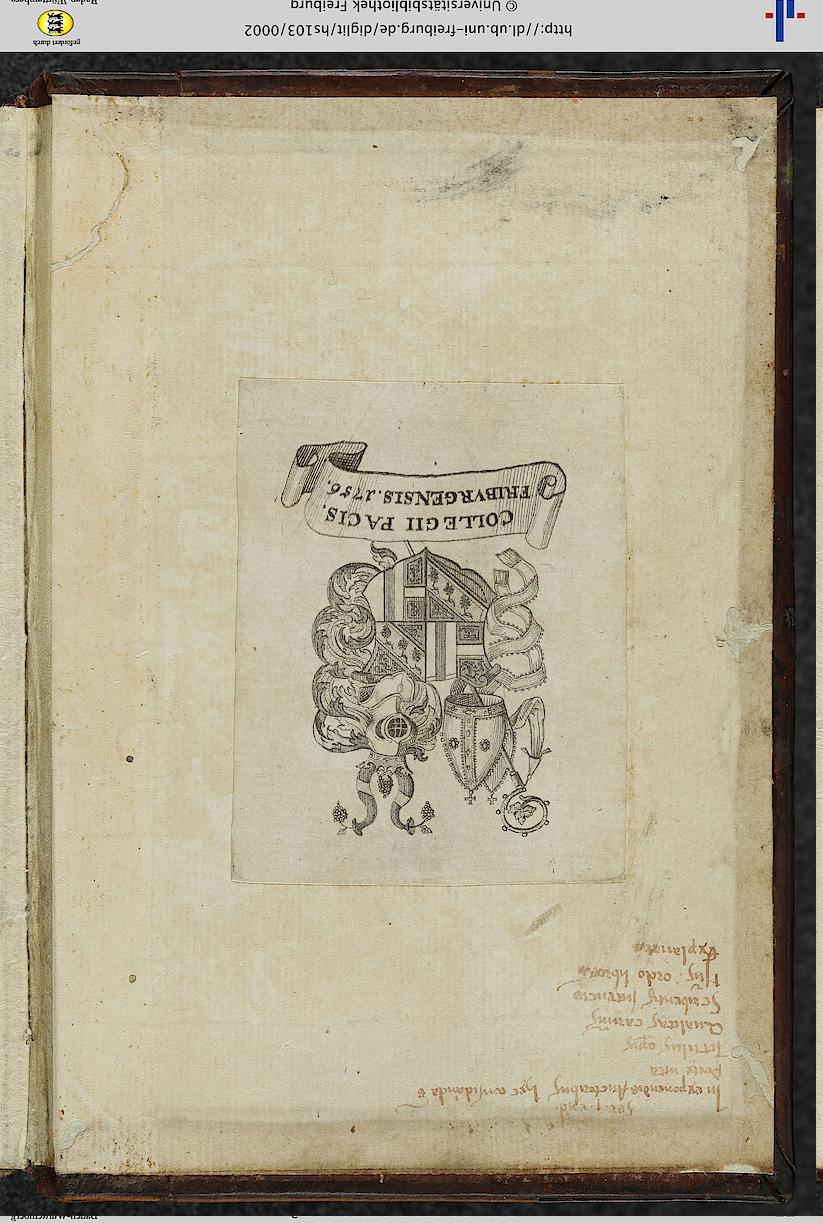 In exponendis Auctoribus hec consideranda
Poete vita
Titulus
Qualitas
Scribentis Intencio
ordo
Explanatio
COLLEGII PACIS.
FRIBVRGENSIS. 1756.
http://dl.ub.uni-freiburg.de/diglit/hs103/0002
© Universitätsbibliothek Freiburg
gefördert durch
Baden-Württemberg